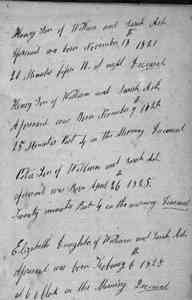 Henry Son of William and Sarah Ash
aforesaid was born November 13th 1821
21 Minutes before 11 at night Deceased
Henry Son of William and Sarah Ash
aforesaid was Born November 9th
25 Minutes Past 4 in the Morning Deceased
Son of William and Sarah Ash
aforesaid was Born April 26th 1825
Twenty minutes Past 4 in the morning Deceased
Elizabeth Daughter of William and Sarah Ash
aforesaid was born February 6th
at 6 o'Clock in the Morning Deceased